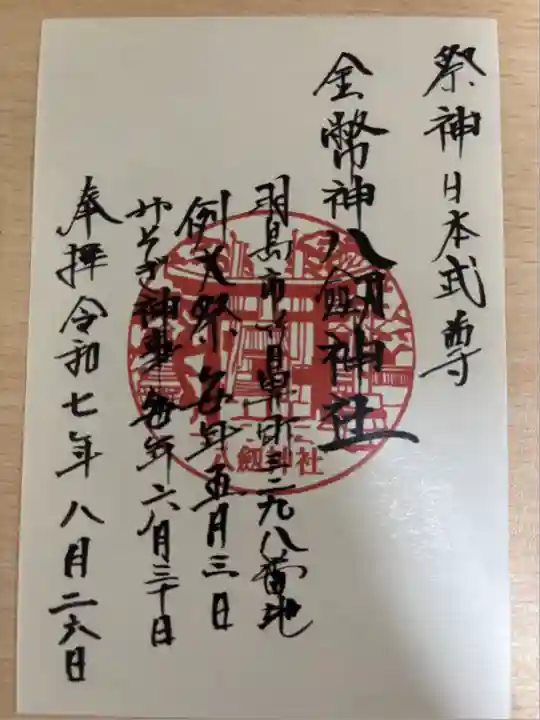 祭神日本武尊
金幣神八劔神社
羽島市正木町三二九八番地
例大祭 毎年五月三日
みそぎ神事 毎年六月三十日
奉拝 令和七年八月二六日
八劔神社